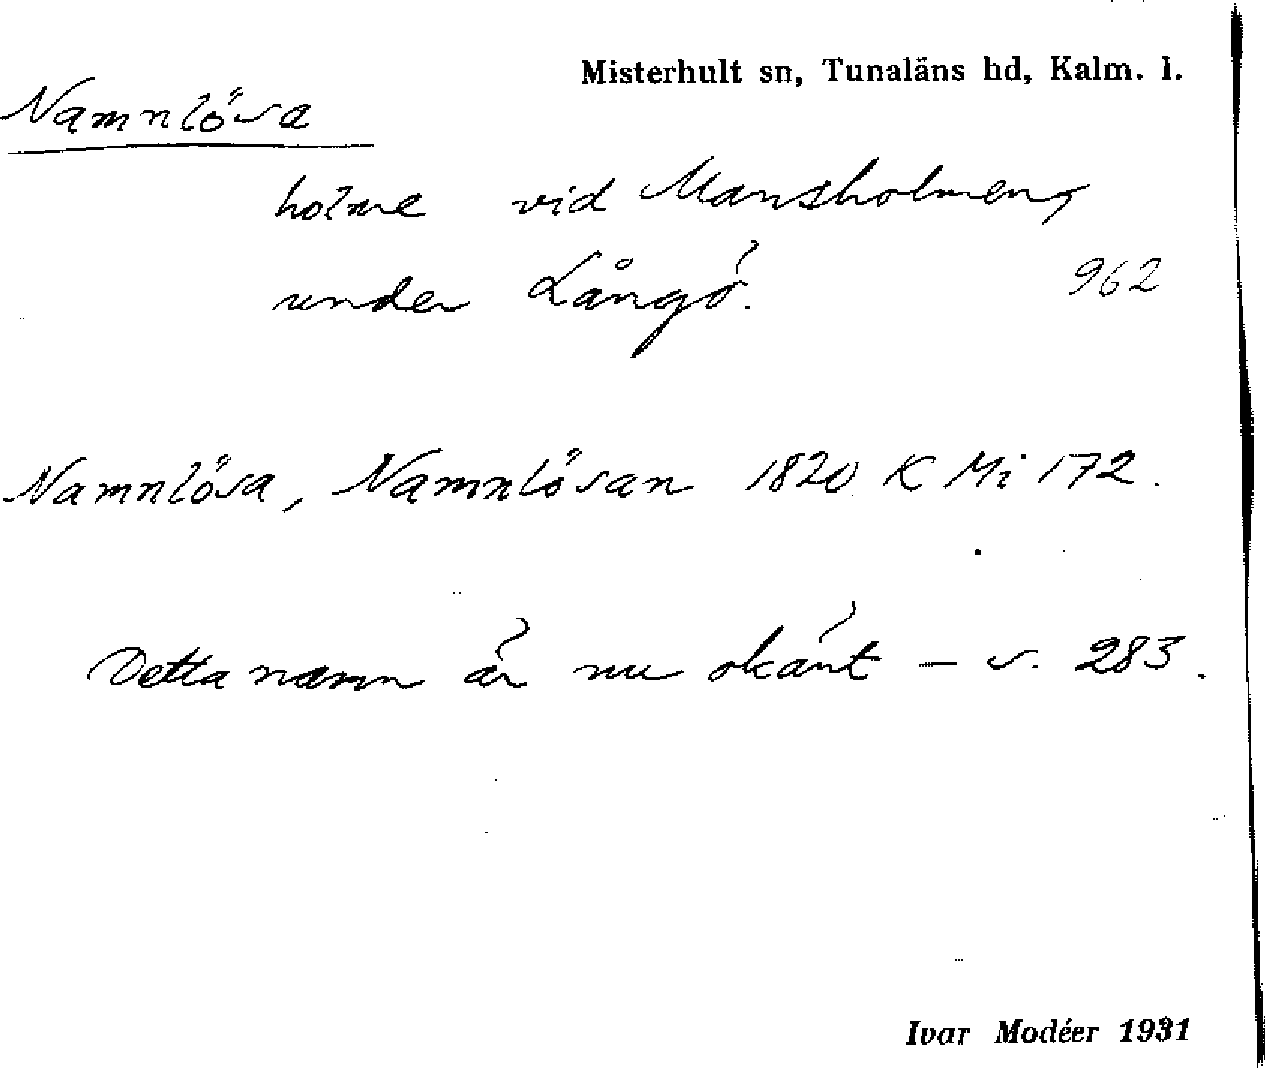 Misterhult sn, Tunaläns hd, Kalm. l.
Namnlösa
holme vid Mansholmen,
under Långö.
962
Namnlösa, Namnlösan 1820 K Mi 172.
Detta namn är nu okänt – s. 283.
Ivar Modéer 1931